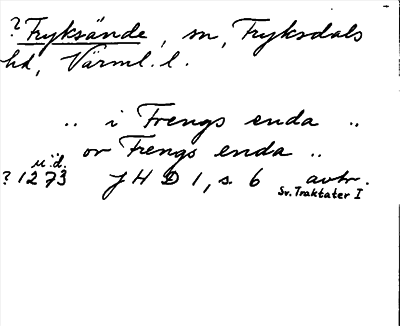 ? Fryksände, sn, Fryksdals
hd, Värml. l.
.. i Frengs enda ..
or Frengs enda ..
u.d.
? 1273 JHD 1, s. 6 avtr.
Sv. Traktater I